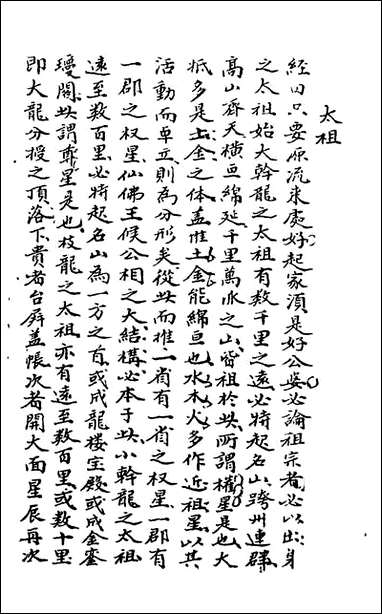 太祖
經曰只要源流来處好起家須是好公婆必論祖宗者必以出身
之太祖始大幹龍之太祖有数千里之遠必特起名山跨州連群
高山齊天橫亘綿延千里萬派之山皆祖於此所謂權星是也大
秪多是土金之体盖惟土金能綿亘也水木火多作近祖星以其
活動而卓立則為分形矣從此而推一省有一省之权星一郡有
一郡之权星仙佛王候公相之大結構必本于此小幹龍之太祖
遠至数百里必特起名山為一方之首或成龍楼宝殿或成金鑾
瓊閣此謂尊星是也枝龍之太祖亦有遠至数百里或数十里
即大龍分授之頂落下貴者台屏盖帳次者開大面星辰再次